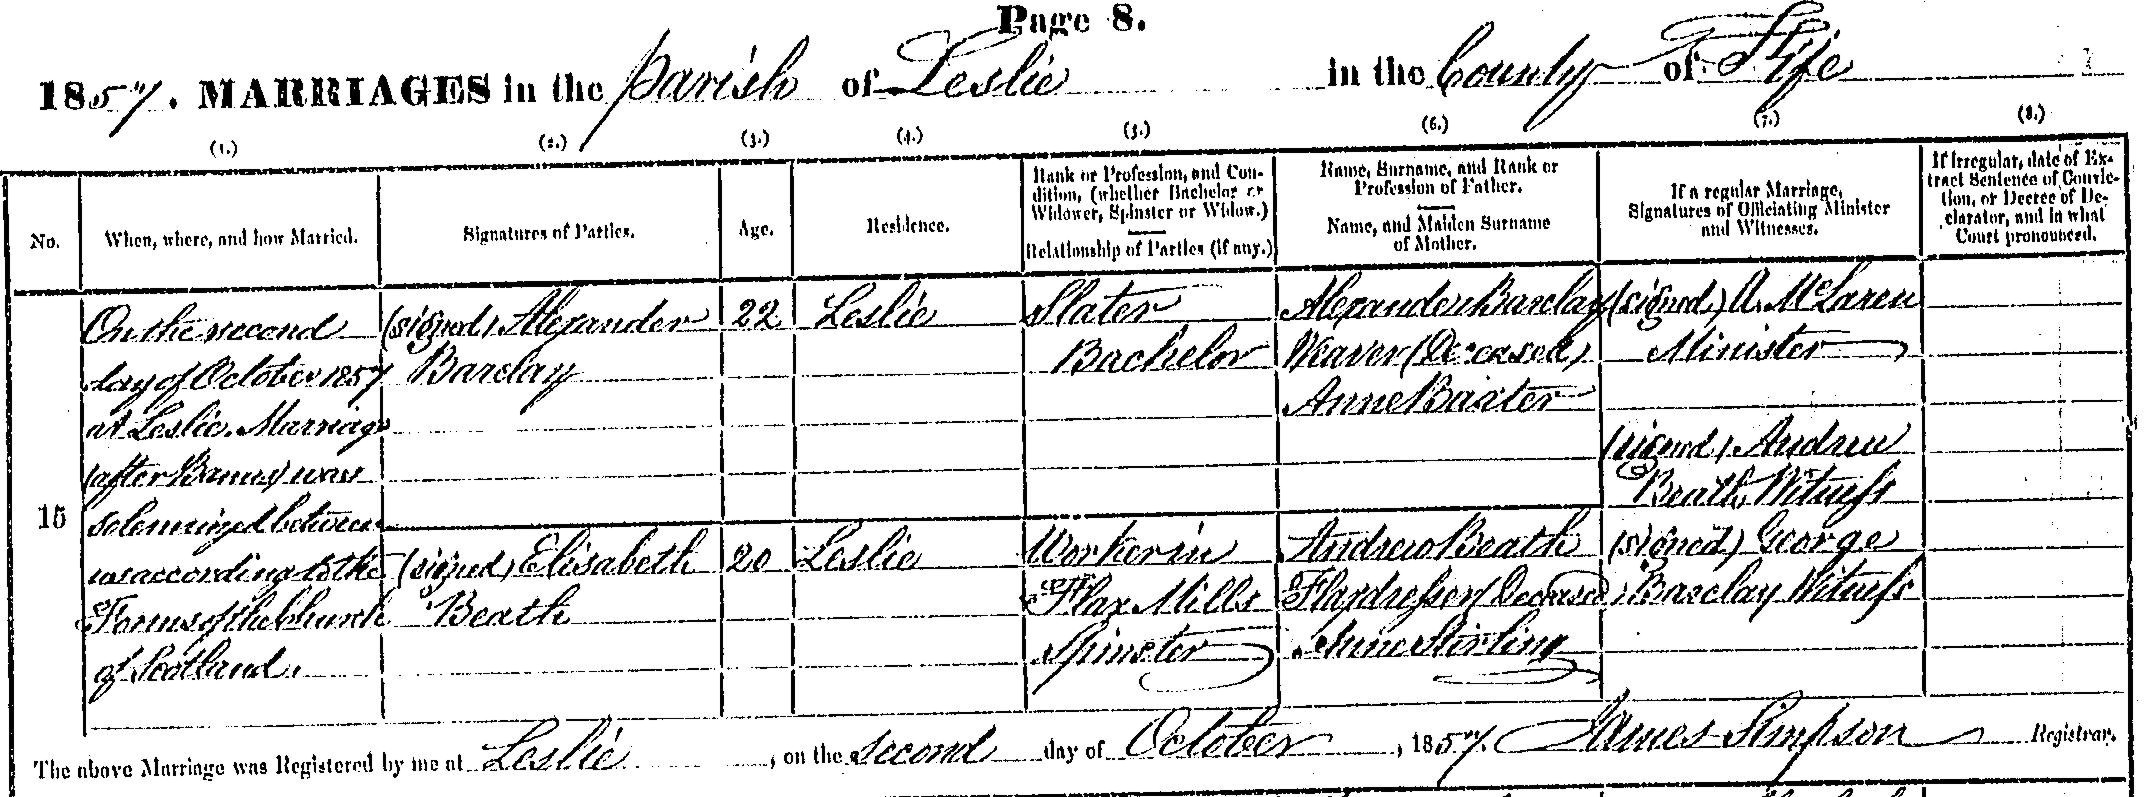 Page 8.
1857. MARRIAGES in the Parish of Leslie in the County of Fife
(1.) (2.) (3.) (4.) (5.) (6.) (7.) (8.)
No.
When, where, and how Married.
Signatures of Parties.
Age.
Residence.
Rank or Profession, and Con-
dition, (whether Bachelor or
Widower, Spinster or Widow.)
Relationship of Parties (if any.)
Name, Surname, and Rank or
Profession of Father.
Name, and Maiden Surname
of Mother.
If a regular Marriage,
Signatures of Officiating Minister
and Witnesses.
If Irregular, date of Ex-
tract Sentence of Convic-
tion, or Decree of De-
clarator, and in what
Court pronounced.
15
On the second
day of October 1857
at Leslie. Marriage
(after Banns) was
solemnized between
us according to the
Forms of the Church
of Scotland.
(signed) Alexander
Barclay
22
Leslie
Slater
Bachelor
Alexander Barclay
Weaver (Deceased)
Anne Baxter
(signed) A. McLaren
Minister
(signed) Andrew
Beath, Witness
(signed) Elisabeth
Beath
20
Leslie
Worker in
Flax Mills
Spinster
Andrew Beath
Flaxdresser (Deceased)
Anne Stirling
(signed) George
Barclay Witness
The above Marriage was Registered by me at Leslie, on the second day of October, 1857. James Simpson Registrar.